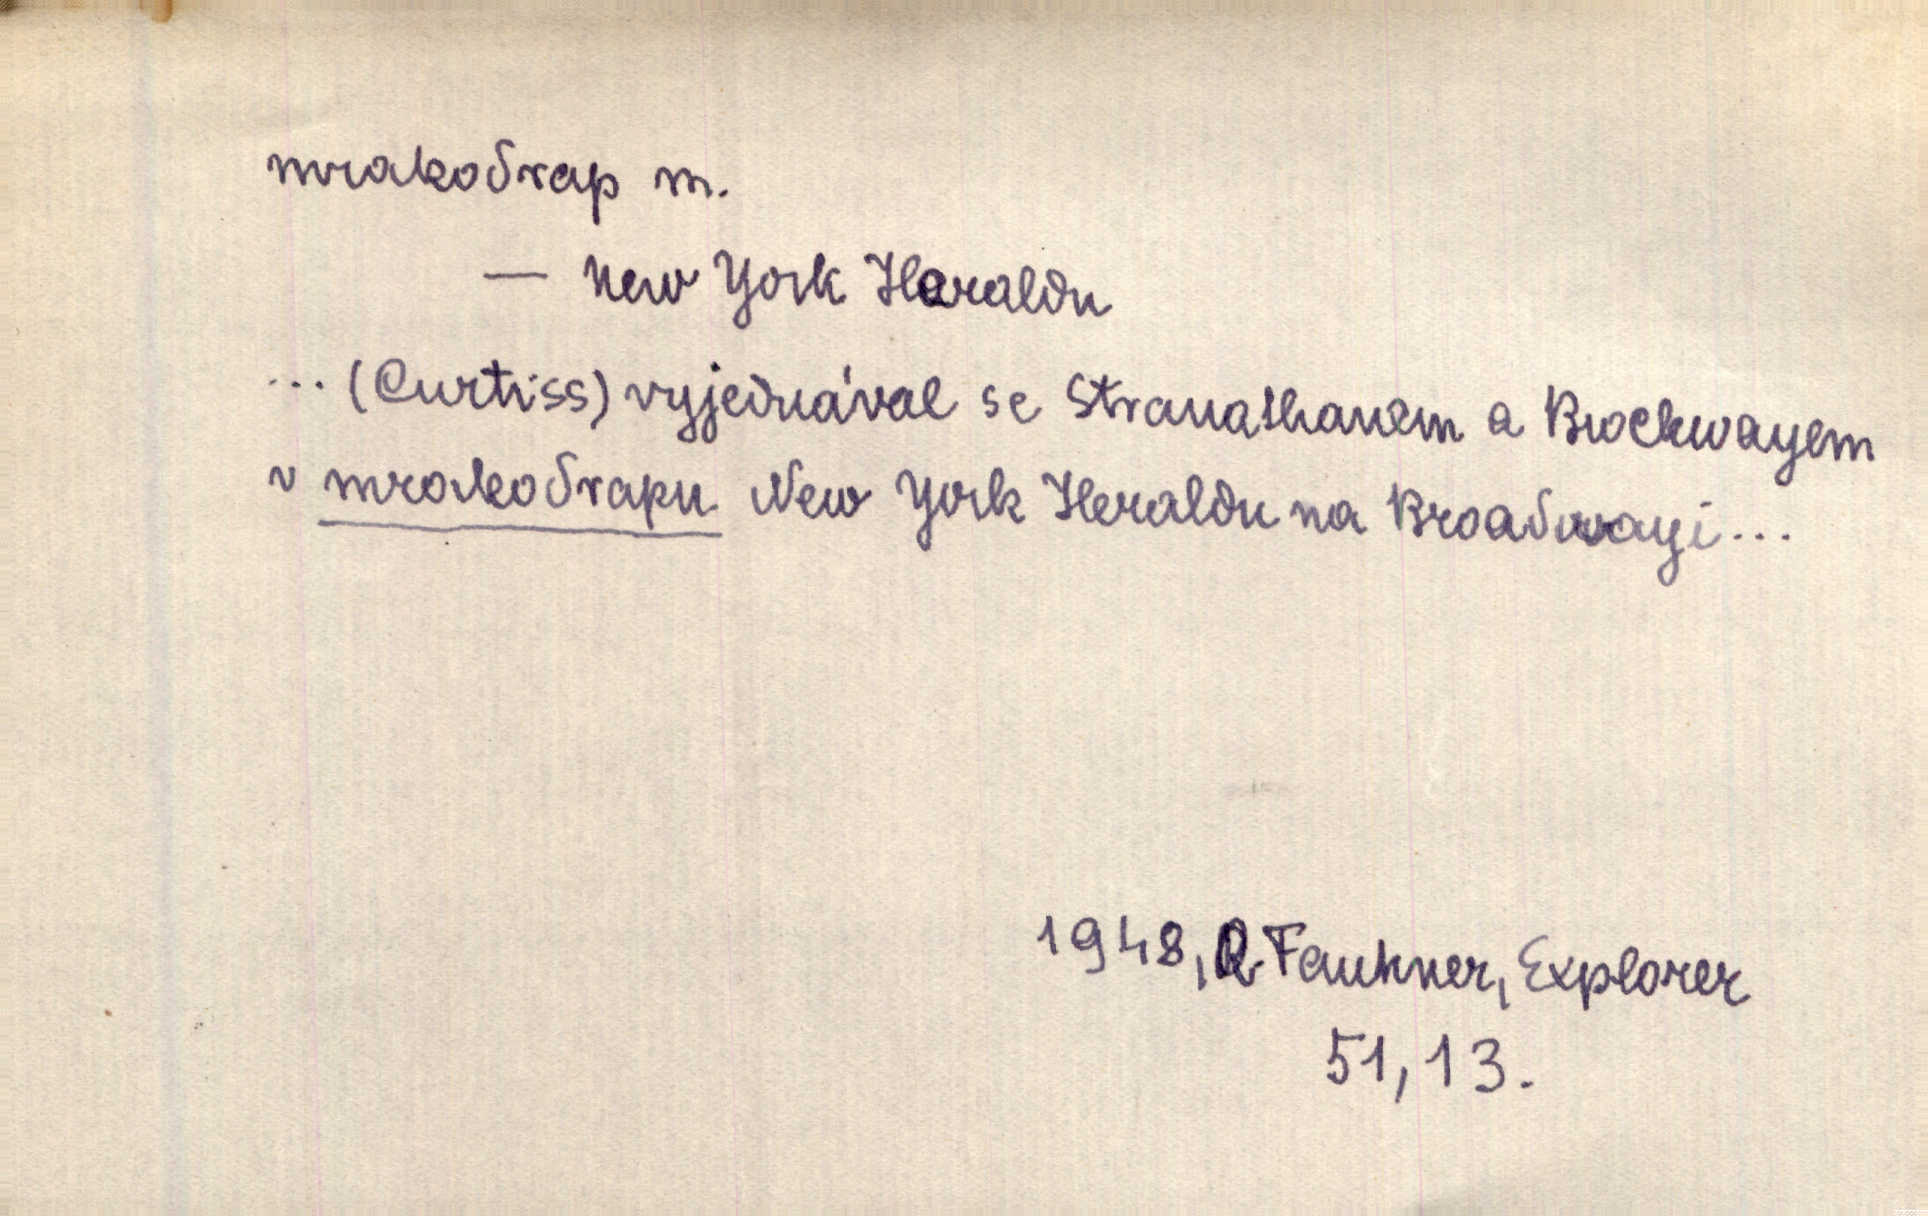 mrakodrap m.
— New York Heraldu
... (Curtiss) vyjednával se Stranathanem a Brockwayem
v mrakodrapu New York Heraldu na Broadwayi...
1948, R. Faukner, Explorer
51, 13.